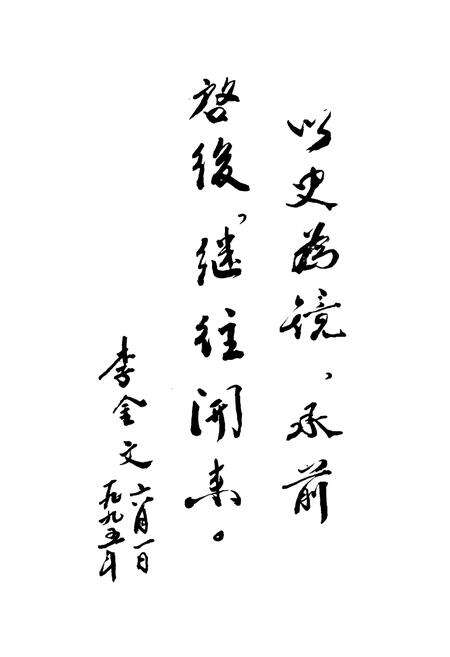 以史為镜，承前
啓後，继往開来。
李金文
一九九五年
六月一日